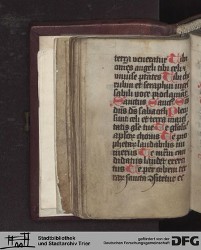 terra veneratur Tibi
omnes angeli tibi celi et
universe ptates Tibi che
rubin et seraphin inces
sabili voce proclamant
Sanctus Sanct Sanct
dns ds sabaoth Pleni
sunt celi et terra maies
tatis glie tue Te glosus
aplor chorus Te pro
phetar laudabilis nu
merus Te can
didatus laudat exerci
tus Te per orbem ter
sancta ec
Stadtbibliothek
und Stadtarchiv Trier
gefördert von der
Deutschen Forschungsgemeinschaft
DFG